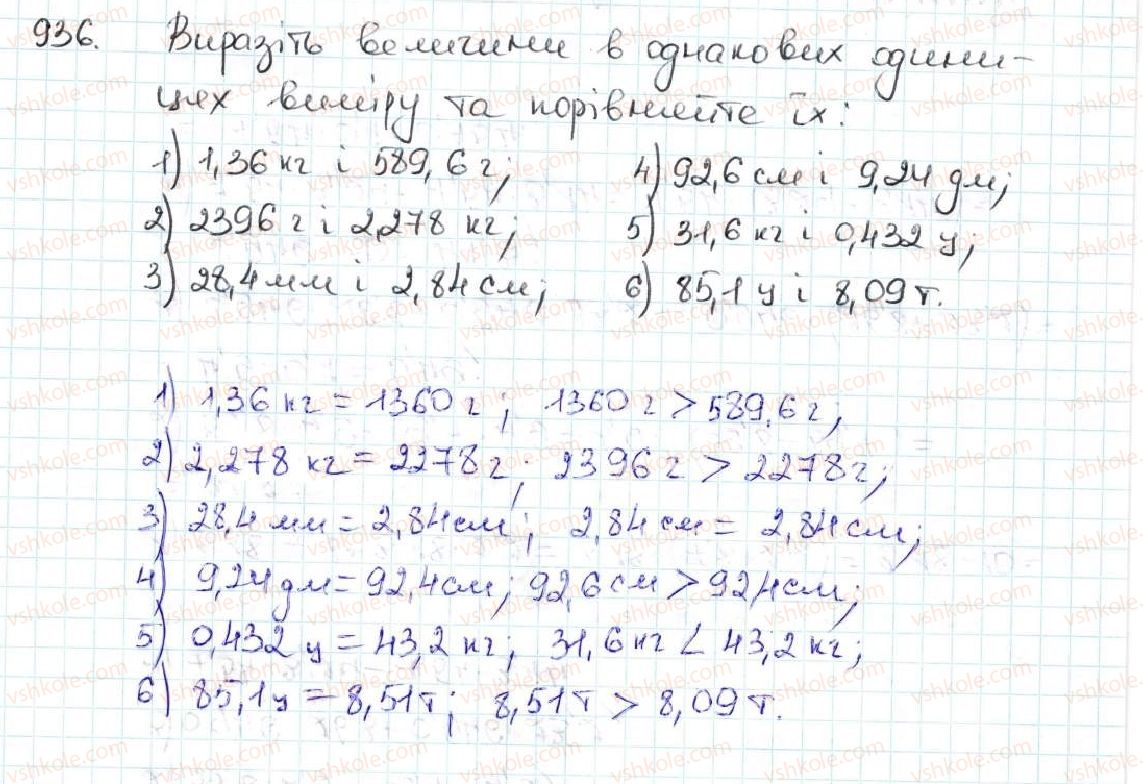 936. Виразіть величини в однакових одини-
цях виміру та порівняйте їх:
1) 1,36 кг і 589,6 г; 4) 92,6 см і 9,24 дм;
2) 2396 г і 2,278 кг; 5) 31,6 кг і 0,432 ц;
3) 28,4 мм і 2,84 см; 6) 85,1 ц і 8,09 т.
1) 1,36 кг = 1360 г; 1360 г > 589,6 г;
2) 2,278 кг = 2278 г; 2396 г > 2278 г;
3) 28,4 мм = 2,84 см; 2,84 см = 2,84 см;
4) 9,24 дм = 92,4 см; 92,6 см > 92,4 см;
5) 0,432 ц = 43,2 кг; 31,6 кг < 43,2 кг;
6) 85,1 ц = 8,51 т; 8,51 т > 8,09 т.